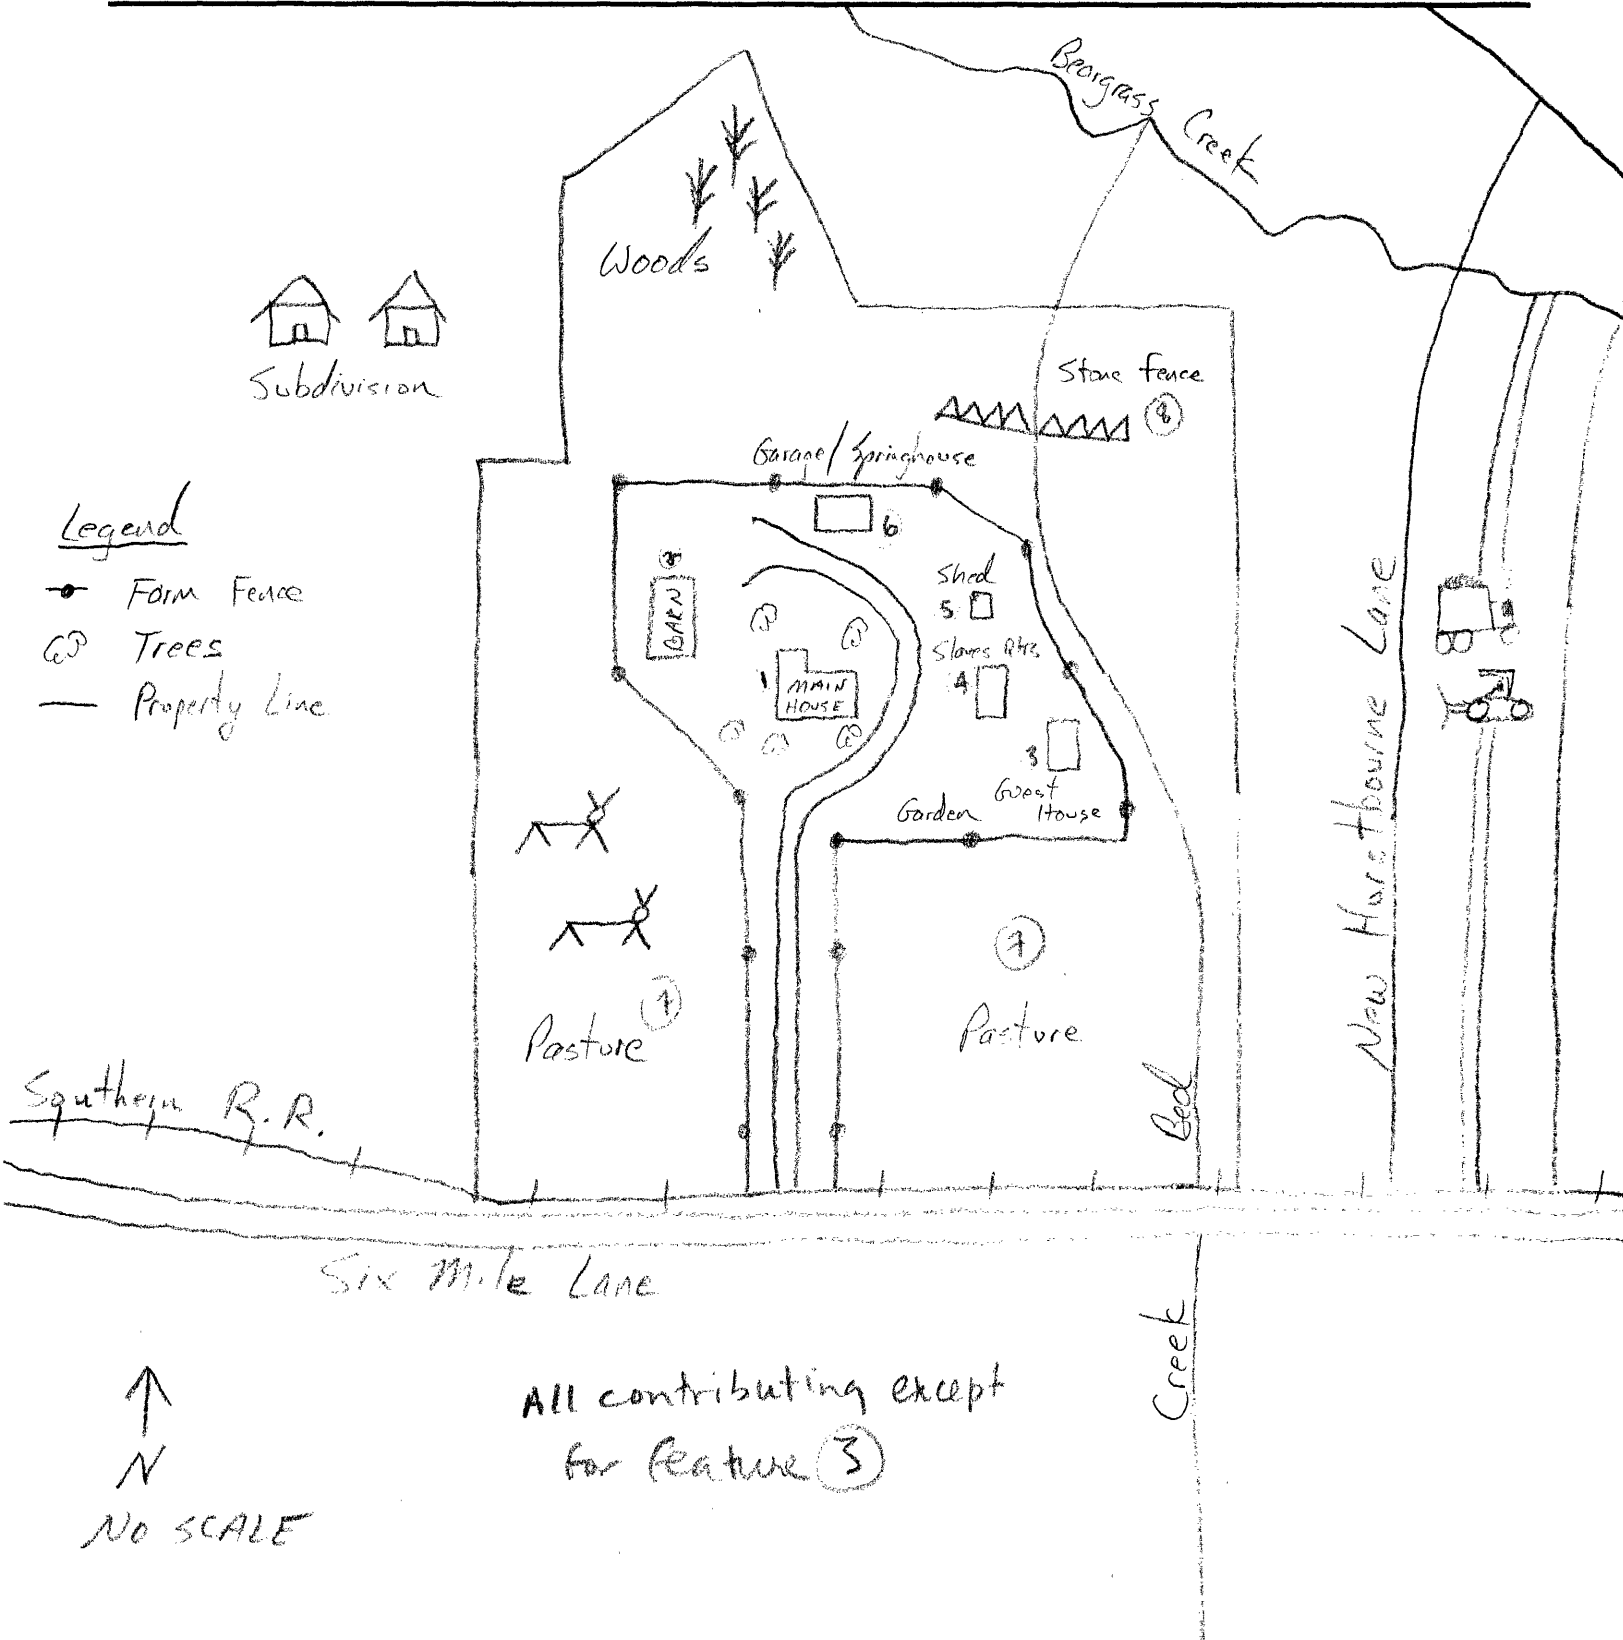 Beargrass
Creek
Woods
Subdivision
Stone Fence
8
Garage/Springhouse
6
Legend
Farm Fence
Trees
Property Line
BARN
Shed
5
Slaves Qtrs
4
1
MAIN
HOUSE
3
Guest
House
Garden
New Hurstbourne Lane
7
Pasture
7
Pasture
Southern R.R.
Bed
Creek
Six Mile Lane
N
NO SCALE
All contributing except
for feature 3